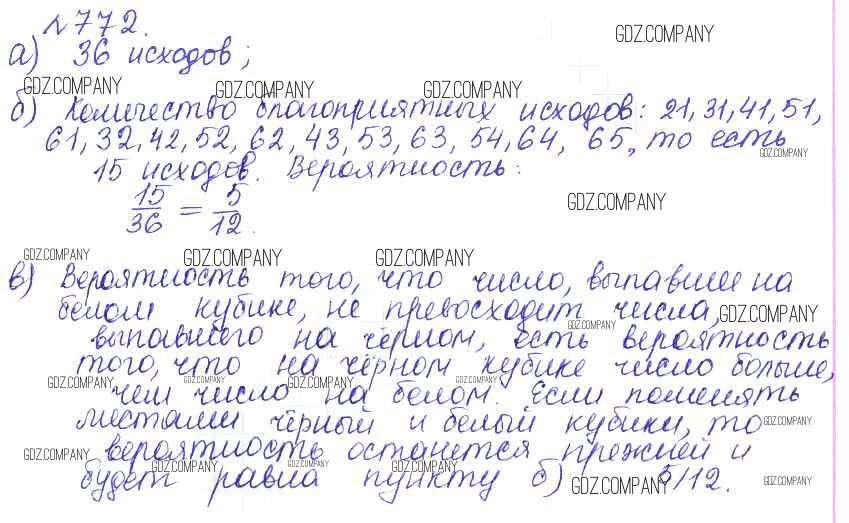 №772.
GDZ.COMPANY
а) 36 исходов;
GDZ.COMPANY GDZ.COMPANY GDZ.COMPANY
б) Количество благоприятных исходов: 21, 31, 41, 51,
61, 32, 42, 52, 62, 43, 53, 63, 54, 64, 65, то есть
GDZ.COMPANY
15 исходов. Вероятность:
15/36 = 5/12.
GDZ.COMPANY
GDZ.COMPANY GDZ.COMPANY GDZ.COMPANY
в) Вероятность того, что число, выпавшее на
белом кубике, не превосходит числа,
GDZ.COMPANY GDZ.COMPANY
выпавшего на чёрном, есть вероятность
того, что на чёрном кубике число больше,
GDZ.COMPANY GDZ.COMPANY GDZ.COMPANY GDZ.COMPANY
чем число на белом. Если поменять
местами чёрный и белый кубики, то
GDZ.COMPANY
вероятность останется прежней и
GDZ.COMPANY GDZ.COMPANY GDZ.COMPANY GDZ.COMPANY
будет равна пункту б) 5/12.
GDZ.COMPANY GDZ.COMPANY